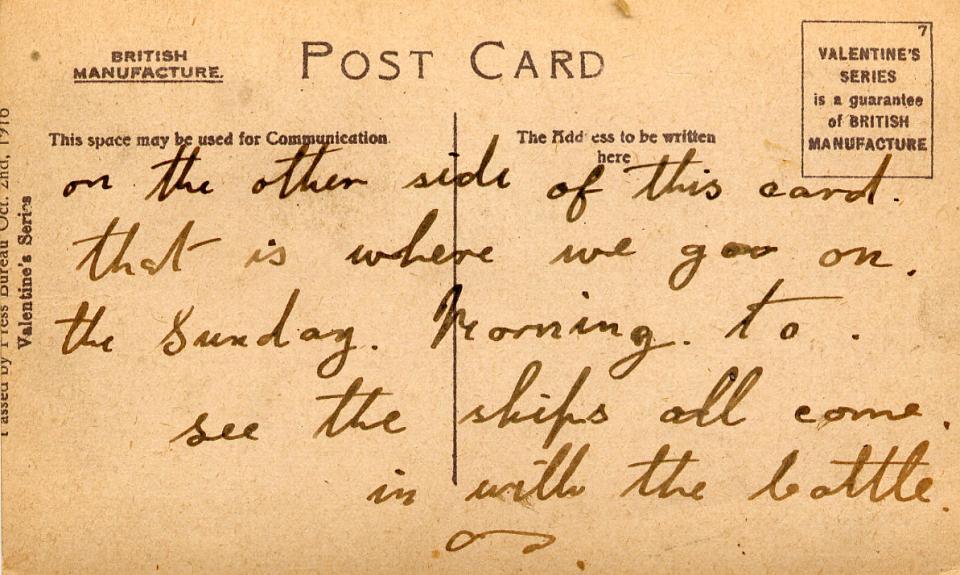 BRITISH
MANUFACTURE.
POST CARD
7
VALENTINE'S
SERIES
is a guarantee
of BRITISH
MANUFACTURE
This space may be used for Communication
The Address to be written
here
on the other side of this card.
that is where we goo on.
the Sunday. Morning. to.
see the ships all come.
in with the battle.
Passed by Press Bureau Oct. 2nd, 1916
Valentine's Series